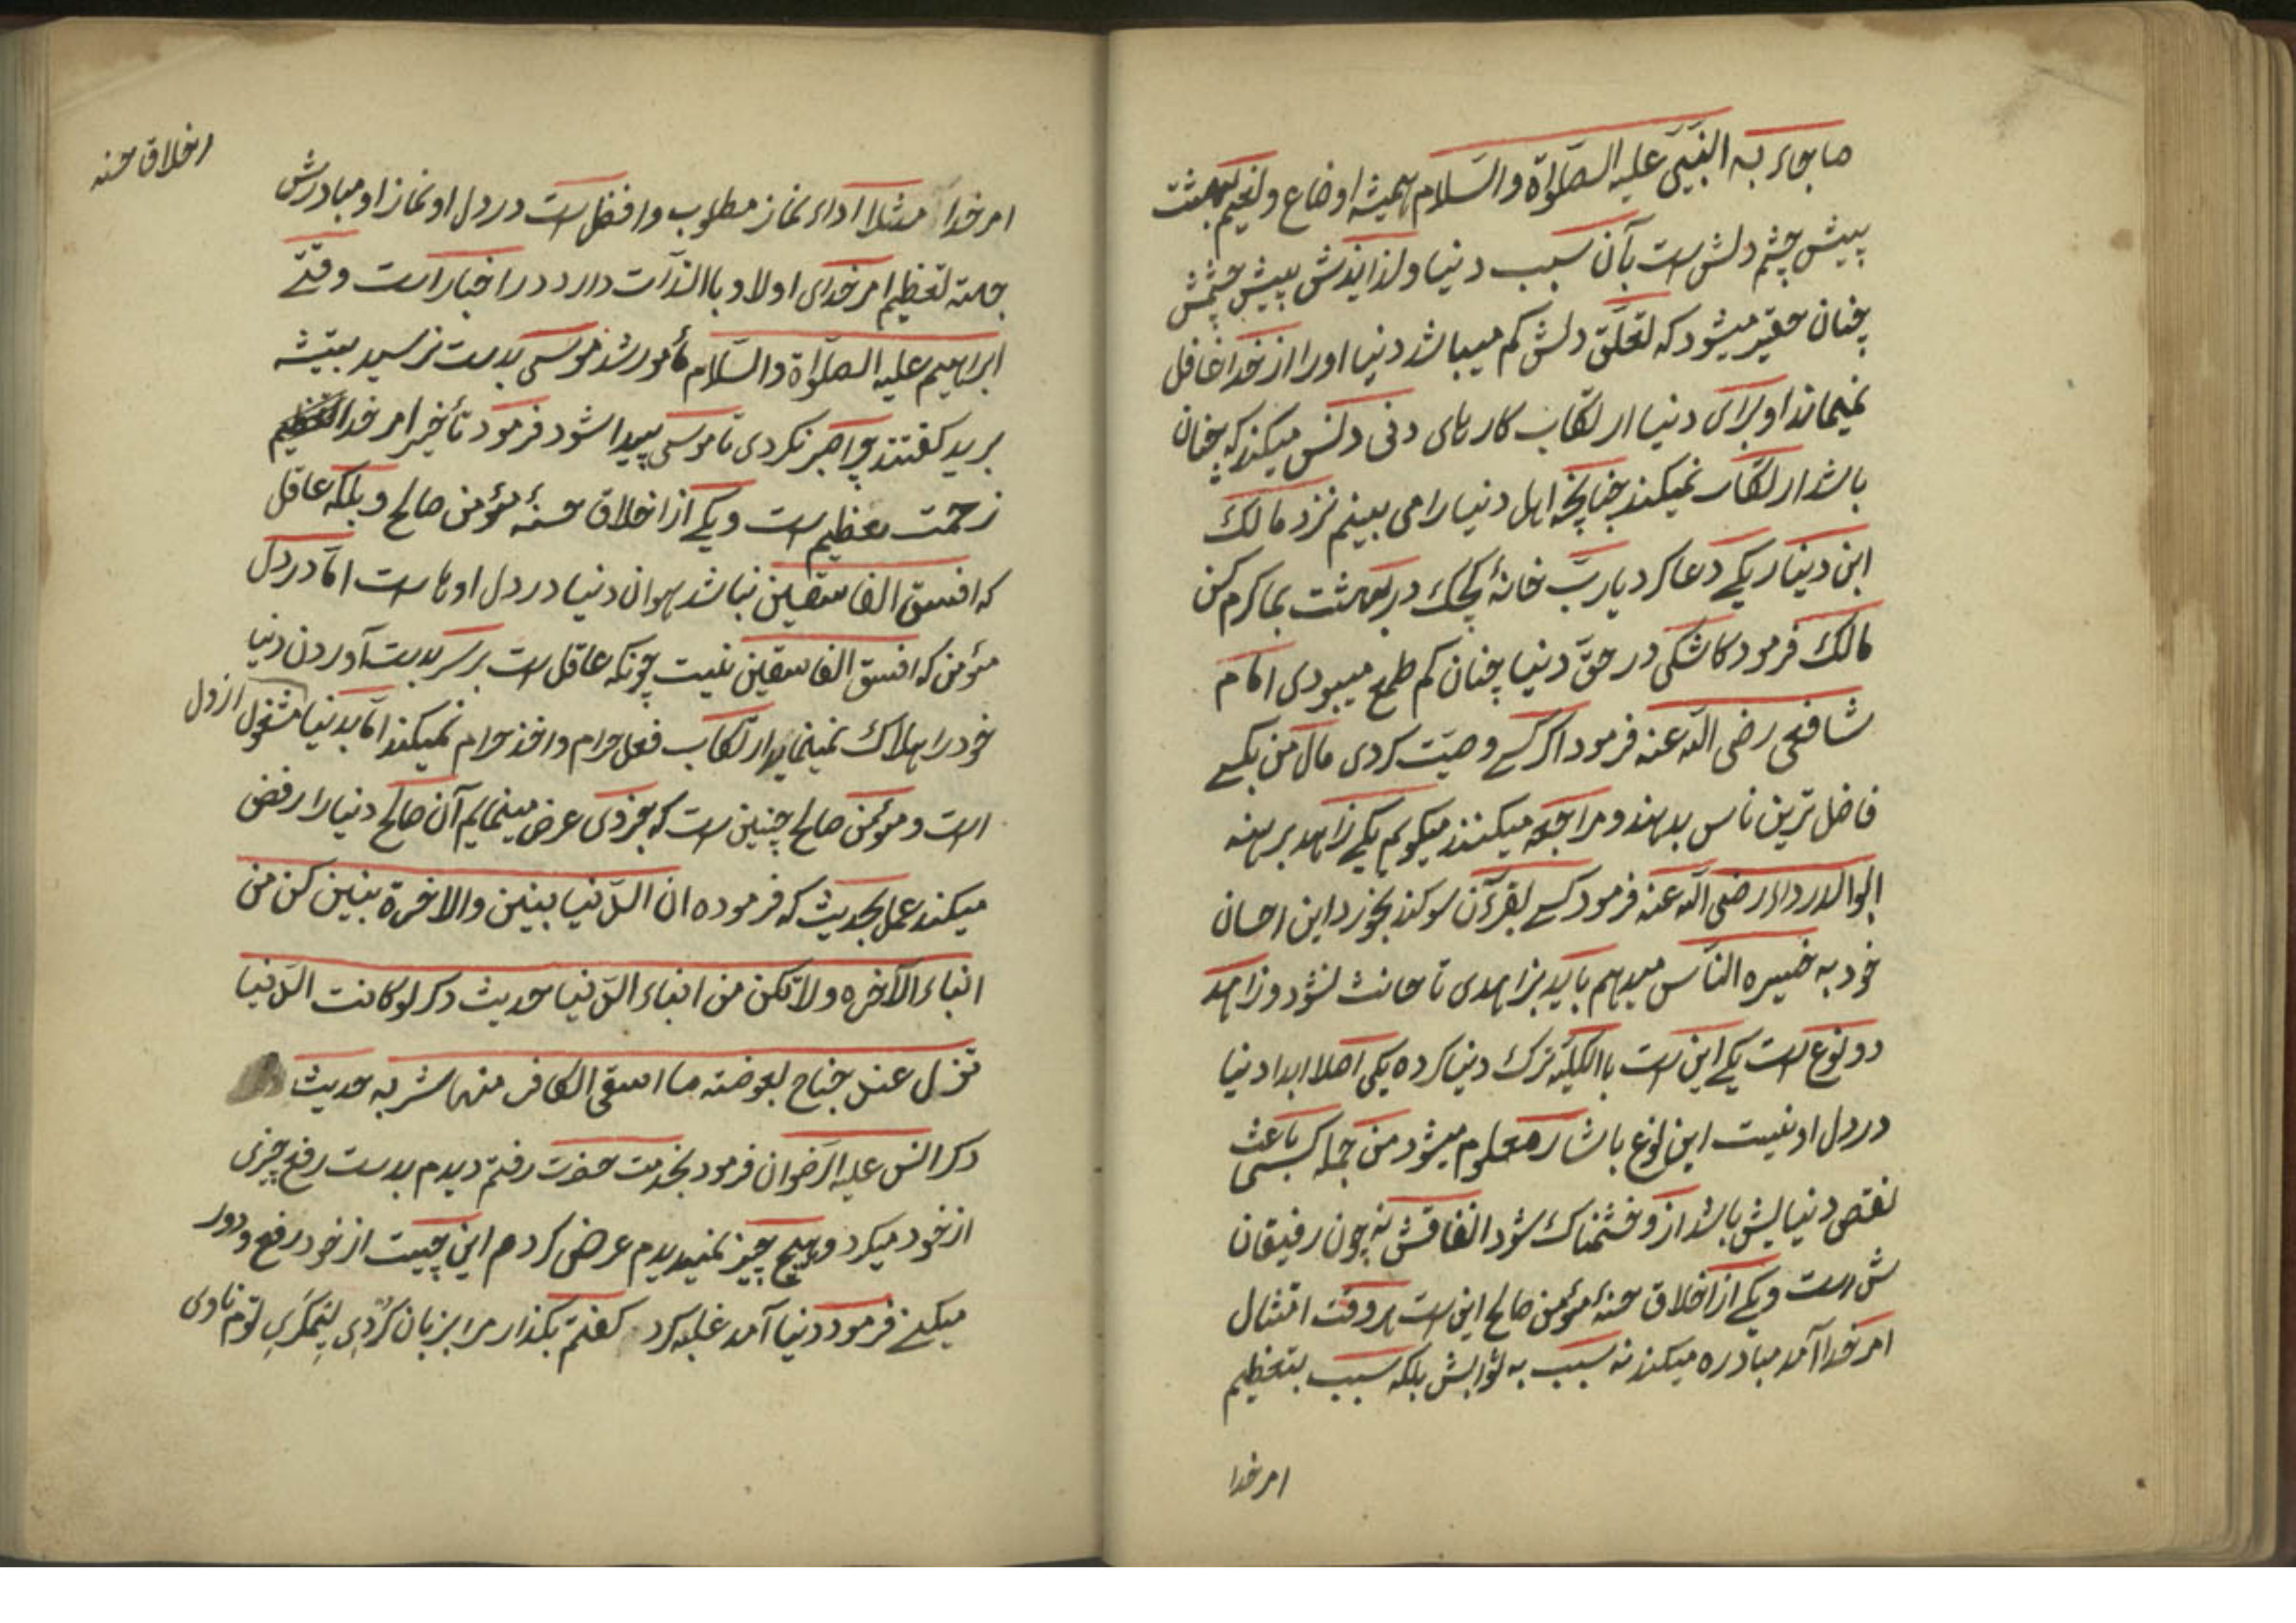 ما جاء به النبیّ علیه الصّلوٰة والسّلام همیشه اوضاع ولنعیم بهشت
پیش چشم دلش است بآن سبب دنیا ولذایذش پیش چشمش
چنان حقیر میشود که تعلّق دلش کم میباشد دنیا اورا از خدا غافل
نمیماند او برای دنیا ارتکاب کارهای دنی دنس میکند که چنان
باشد ارتکاب نمیکند چنانچه اهل دنیا را می بینم نزد مالک
ابن دینار یکے دعا کرد یا ربّ خانهٔ کچک در بهشت بما کرم کن
مالک فرمود کاشکی در حقّ دنیا چنان کم طمع میبودی امام
شافعی رضی الله عنه فرمود اگر کسے وصیّت کردی مال من بکسے
فاضل ترین ناس بدهند و مراجعه میکنند میکویم یکے زاهد برهنه
ابوالدرداء رضی الله عنه فرمود کسے بقرءآن سوکند بخورد این احسان
خود به خیره النّاس میدهم باید بزاهدی تا حانث نشود و زاهد
دو نوع است یکے این است باالکلیّه ترک دنیا کرده یکی اصلا ابدا دنیا
در دل او نیست این نوع باشاره معلوم میشود من جمله کسی باعث
نقص دنیایش باشد ازو خشمناک شود انفاقش نه چون رفیقان
ش است ویکے از اخلاق حسنهٔ مؤمن صالح این است هر وقت امتثال
امر خدا آمد مبادره میکند نه سبب به ثوابش بلکه سبب بتعظیم
امر خدا
اخلاق حسنه
امر خدا مثلا اداء نماز مطلوب وافضل است در دل او نماز او مبادرش
جهته تعظیم امر خدای اولا و باالذّات دارد در اخبار است وقتے
ابراهیم علیه الصّلوٰة والسّلام مأمور شد موسی بدست نرسید بتیشه
برید کفتند چرا صبر نکردی تا موسی پیدا شود فرمود تأخیر امر خدا
زحمت عظیم است ویکے از اخلاق حسنهٔ مؤمن صالح و بلکه عاقل
که افسق الفاسقین نباشد هوان دنیا در دل اوها است امّا در دل
مؤمن که افسق الفاسقین نیست چونکه عاقل است بر سر بدست آوردن دنیا
خود را هلاک نمینماید ارتکاب فعل حرام واخذ حرام نمیکند امّا بدنیا مشغول از دل
است و مؤمن صالح چنین است که بجزوی عرض مینمایم آن صالح دنیا را رفض
میکند عمل بحدیث که فرموده ان الدّنیا بنین والاخرة بنین کن من
ابناء الآخره ولا تکن من ابناء الدّنیا حدیث دکر لو کانت الدّنیا
تزل عند جناح بعوضته ما اسقی الکافر منها شربه حدیث
دکر انس علیه الرّضوان فرمود بخدمت حضرت رفتم دیدم بدست رفع چیزی
از خود میکرد و هیچ چیز نمیدیدم عرض کردم این چیست از خود رفع و دور
میکنے فرمود دنیا آمد غلبه کرد کفتم بکذار مرا بزبان کردی